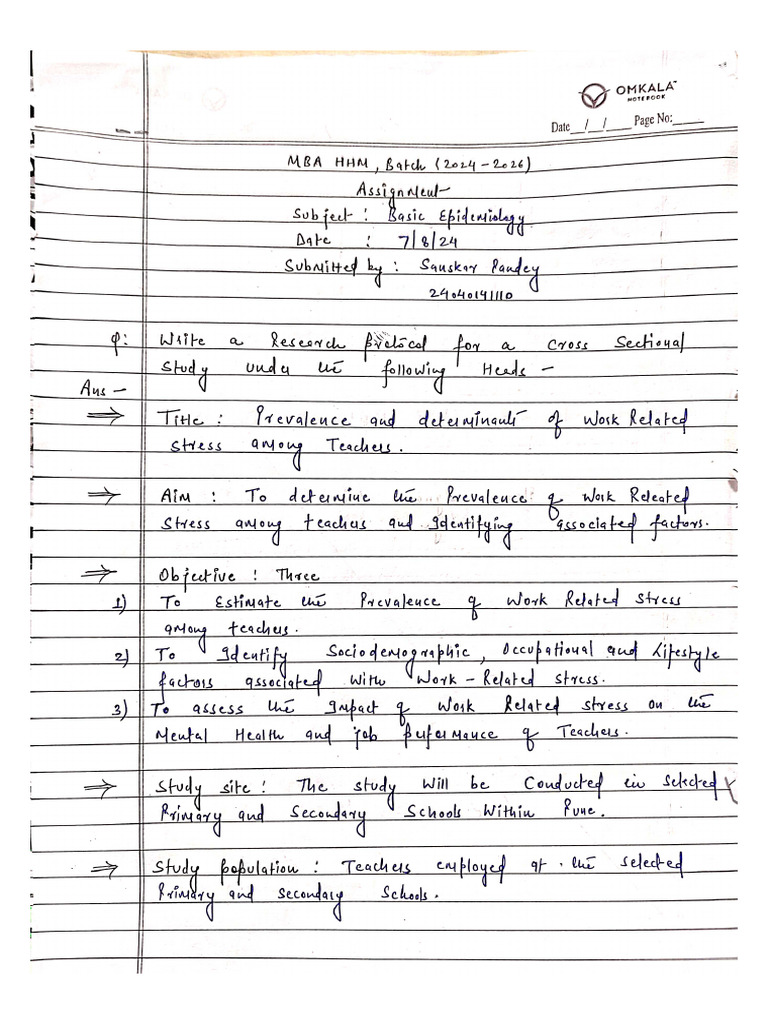 OMKALA
NOTEBOOK
Date__/__/____ Page No:_____
MBA HHM, Batch (2024-2026)
Assignment
Subject : Basic Epidemiology
Date : 7/8/24
Submitted by : Sanskar Pandey
24040141110
Q: Write a Research protocol for a cross sectional
study under the following Heads -
Ans -
⇒ Title : Prevalence and determinants of Work Related
stress among Teachers.
⇒ Aim : To determine the Prevalence of Work Releated
stress among teachers and Identifying associated factors.
⇒ Objective : Three
1) To Estimate the Prevalence of Work Related stress
among teachers.
2) To Identify Sociodemographic, Occupational and Lifestyle
factors associated with Work-Related stress.
3) To assess the Impact of Work Related stress on the
Mental Health and job performance of Teachers.
⇒ Study site : The study will be Conducted in selected
Primary and Secondary Schools Within Pune.
⇒ Study population : Teachers employed at the selected
Primary and secondary Schools.